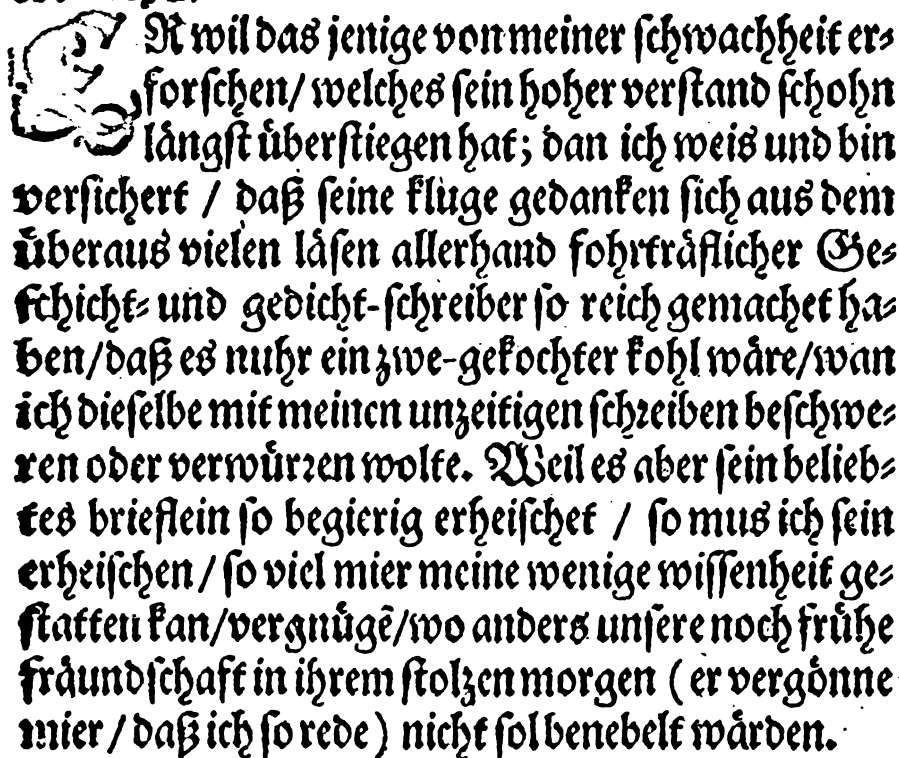 ER wil das jenige von meiner ſchwachheit er⸗
forſchen/ welches ſein hoher verſtand ſchohn
längſt überſtiegen hat; dan ich weis und bin
verſichert / daß ſeine kluge gedanken ſich aus dem
überaus vielen läſen allerhand fohrträflicher Ge⸗
ſchicht⸗ und gedicht-ſchreiber ſo reich gemachet ha⸗
ben/daß es nuhr ein zwe-gekochter kohl wäre/wan
ich dieſelbe mit meinen unzeitigen ſchreiben beſchwe⸗
ren oder verwürren wolte. Weil es aber ſein belieb⸗
tes brieflein ſo begierig erheiſchet / ſo mus ich ſein
erheiſchen / ſo viel mier meine wenige wiſſenheit ge⸗
ſtatten kan/vergnügẽ/wo anders unſere noch frühe
fräundſchaft in ihrem ſtolzen morgen ( er vergönne
mier / daß ich ſo rede ) nicht ſol benebelt wärden.